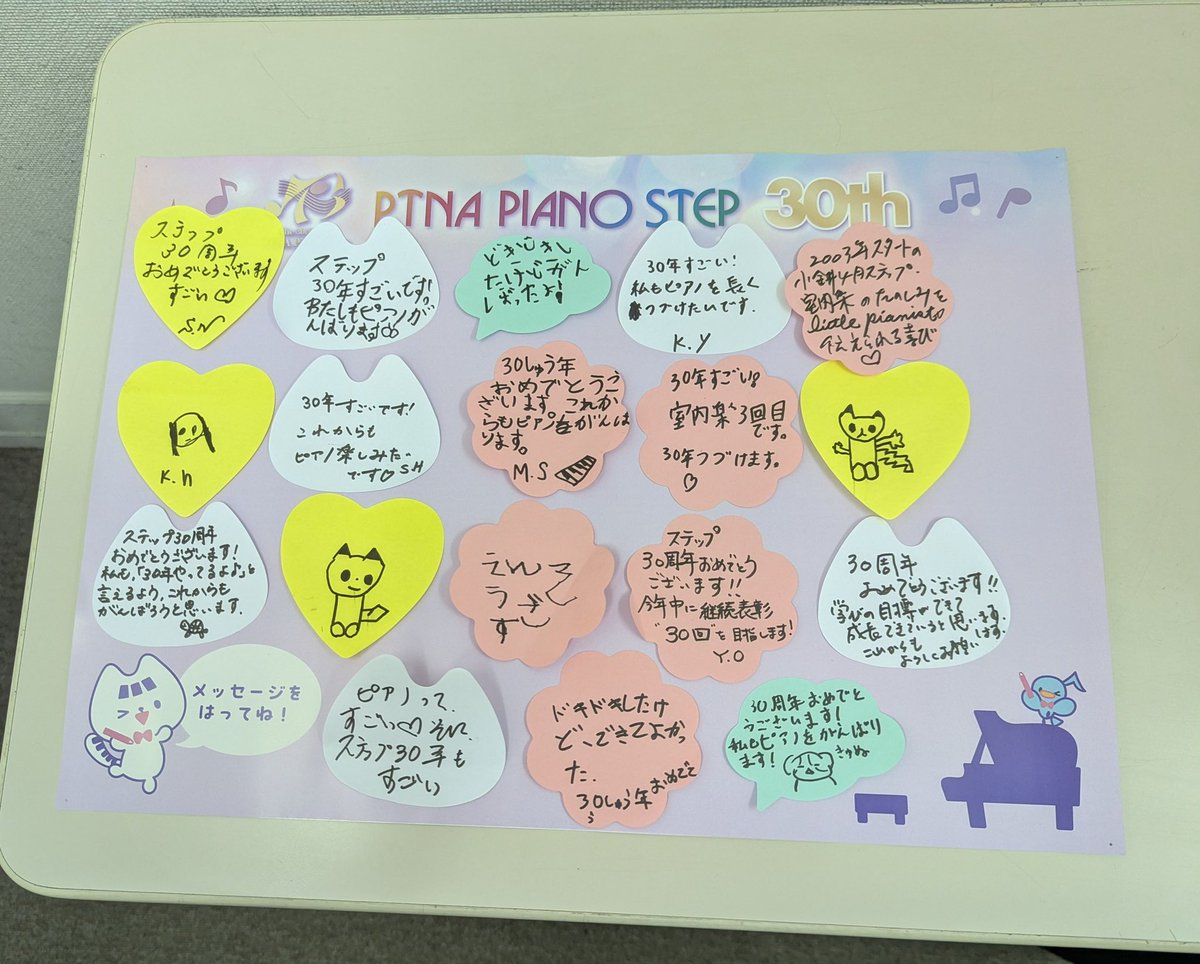 PTNA PIANO STEP 30th
ステップ
30周年
おめでとうございます
すごい♡
S.N
ステップ
30年すごいです!
わたしもピアノが
んばります♡
どきどきし
たけどがん
ばったよ!
30年すごい!
私もピアノを長く
つづけたいです.
K.Y
2003年スタートの
小金井4月ステップ.
室内楽のたのしみを
little pianists
伝えられる喜び
♡
K.n
30年すごいです!
これからも
ピアノ楽しみたい
です♡ S.H
30しゅう年
おめでとうご
ざいます これか
らもピアノをがんば
ります。
M.S
30年すごい!
室内楽3回目
です。
30年つづけます。
♡
ステップ30周年
おめでとうございます!
私も、「30年やってるよ♪」と
言えるよう、これからも
がんばろうと思います.
ステップ
30周年おめでとう
ございます!!
今年中に継続表彰
"30回"を目指します!
Y.O
30周年
おめでとうございます!!
学びの目標ができて
成長できていると思います.
これからも
よろしくお願いします.
メッセージを
はってね!
ピアノって、
すごい♡ そして、
ステップ30年も
すごい
ドキドキしたけ
どできてよかっ
た.
30しゅう年おめでとう
30周年おめでと
うございます!
私もピアノをがんばり
ます!